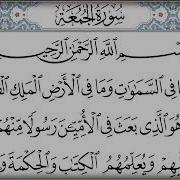 سُورَةُ الجُمُعَةِ
سْمِ ٱللَّهِ ٱلرَّحْمَٰنِ ٱلرَّحِيمِ
فِي ٱلسَّمَٰوَٰتِ وَمَا فِي ٱلْأَرْضِ ٱلْمَلِكِ ٱلْقُ
هُوَ ٱلَّذِي بَعَثَ فِي ٱلْأُمِّيِّـۧنَ رَسُولًا مِّنْهُمْ
يهِمْ وَيُعَلِّمُهُمُ ٱلْكِتَٰبَ وَٱلْحِكْمَةَ وَ